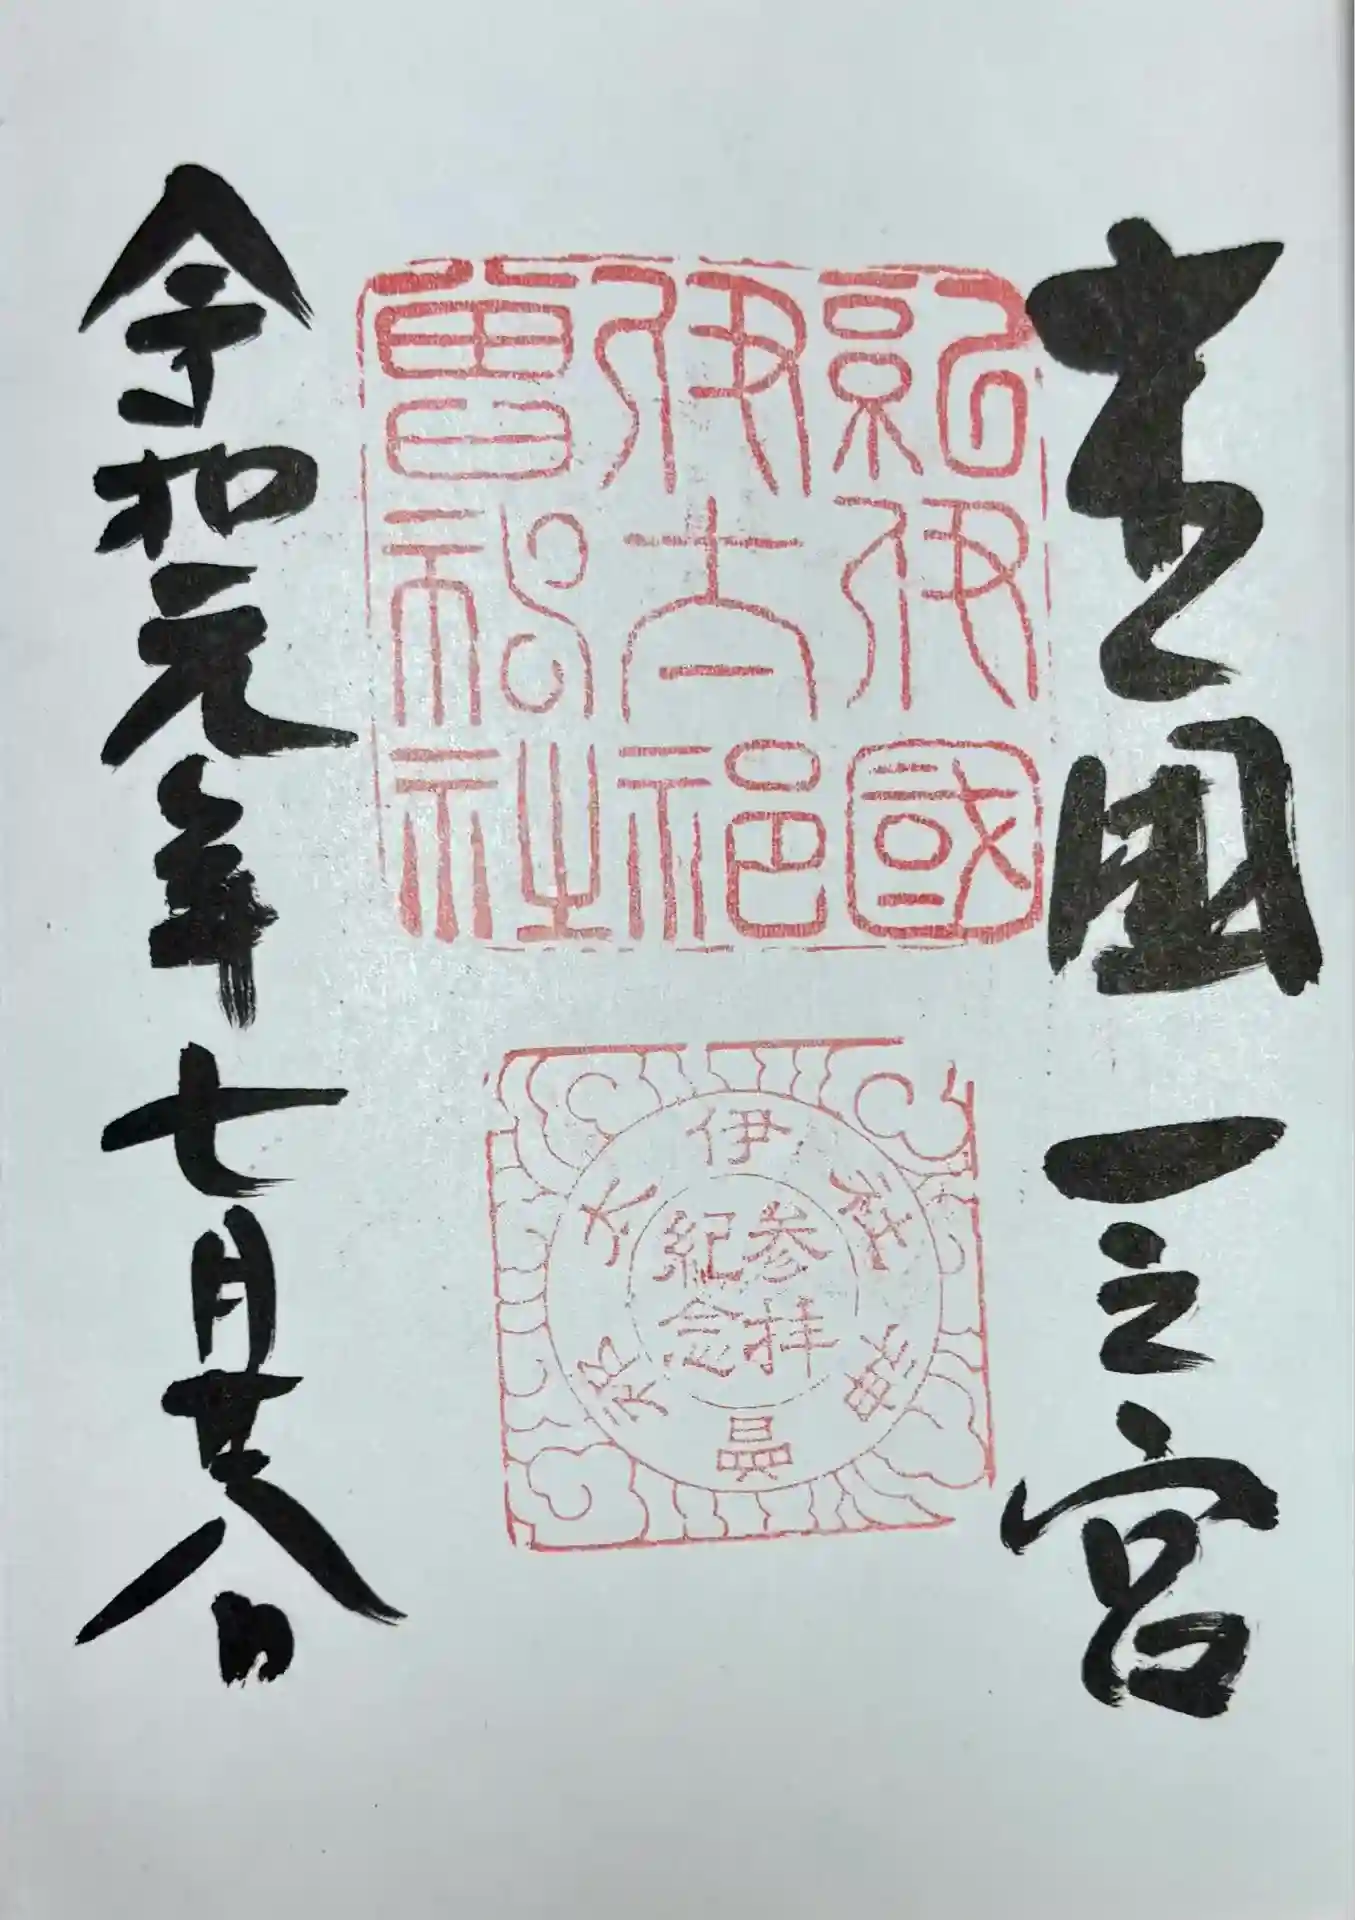 国一之宮
紀伊國
伊太祁
曽神社
伊太祁曽神社
参拝
紀念
令和元年七月廿八日